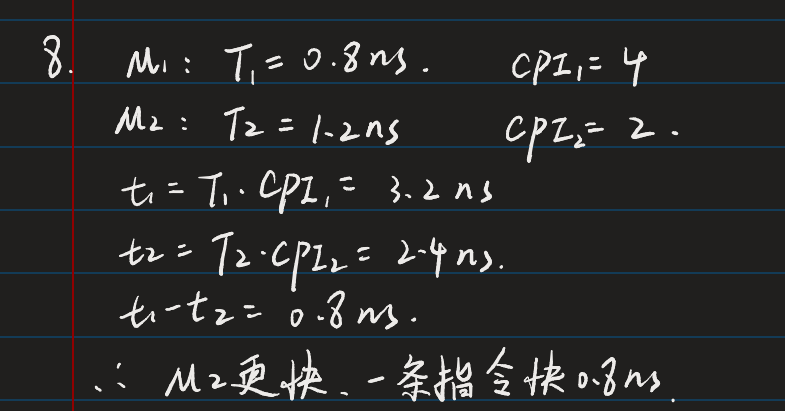 8. M₁: T₁ = 0.8 ns. CPI₁ = 4
M₂: T₂ = 1.2 ns CPI₂ = 2.
t₁ = T₁·CPI₁ = 3.2 ns
t₂ = T₂·CPI₂ = 2.4 ns.
t₁-t₂ = 0.8 ns.
∴ M₂更快、一条指令快0.8ns.